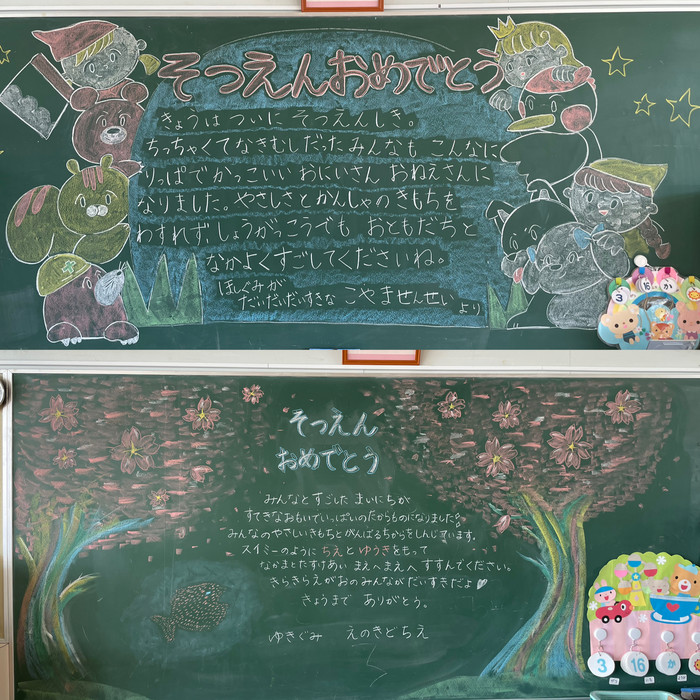 そつえんおめでとう
きょうは ついに そつえんしき。
ちっちゃくてなきむしだった みんなも こんなに
りっぱでかっこいい おにいさん おねえさんに
なりました。やさしさとかんしゃの きもちを
わすれず、しょうがっこうでも おともだちと
なかよくすごしてくださいね。
ほしぐみが
だいだいだいすきな こやませんせい より
3 16 か
そつえん
おめでとう
みんなとすごした まいにちが
すてきなおもいでいっぱいのたからものになりました。
みんなのやさしいきもちとがんばるちからをしんじています。
スイミーのように ちえ と ゆうきをもって
なかまとたすけあい まえへまえへ すすんでください。
きらきらえがおのみんながだいすきだよ♡
きょうまで ありがとう。
ゆきぐみ えのきどちえ
3 16 か